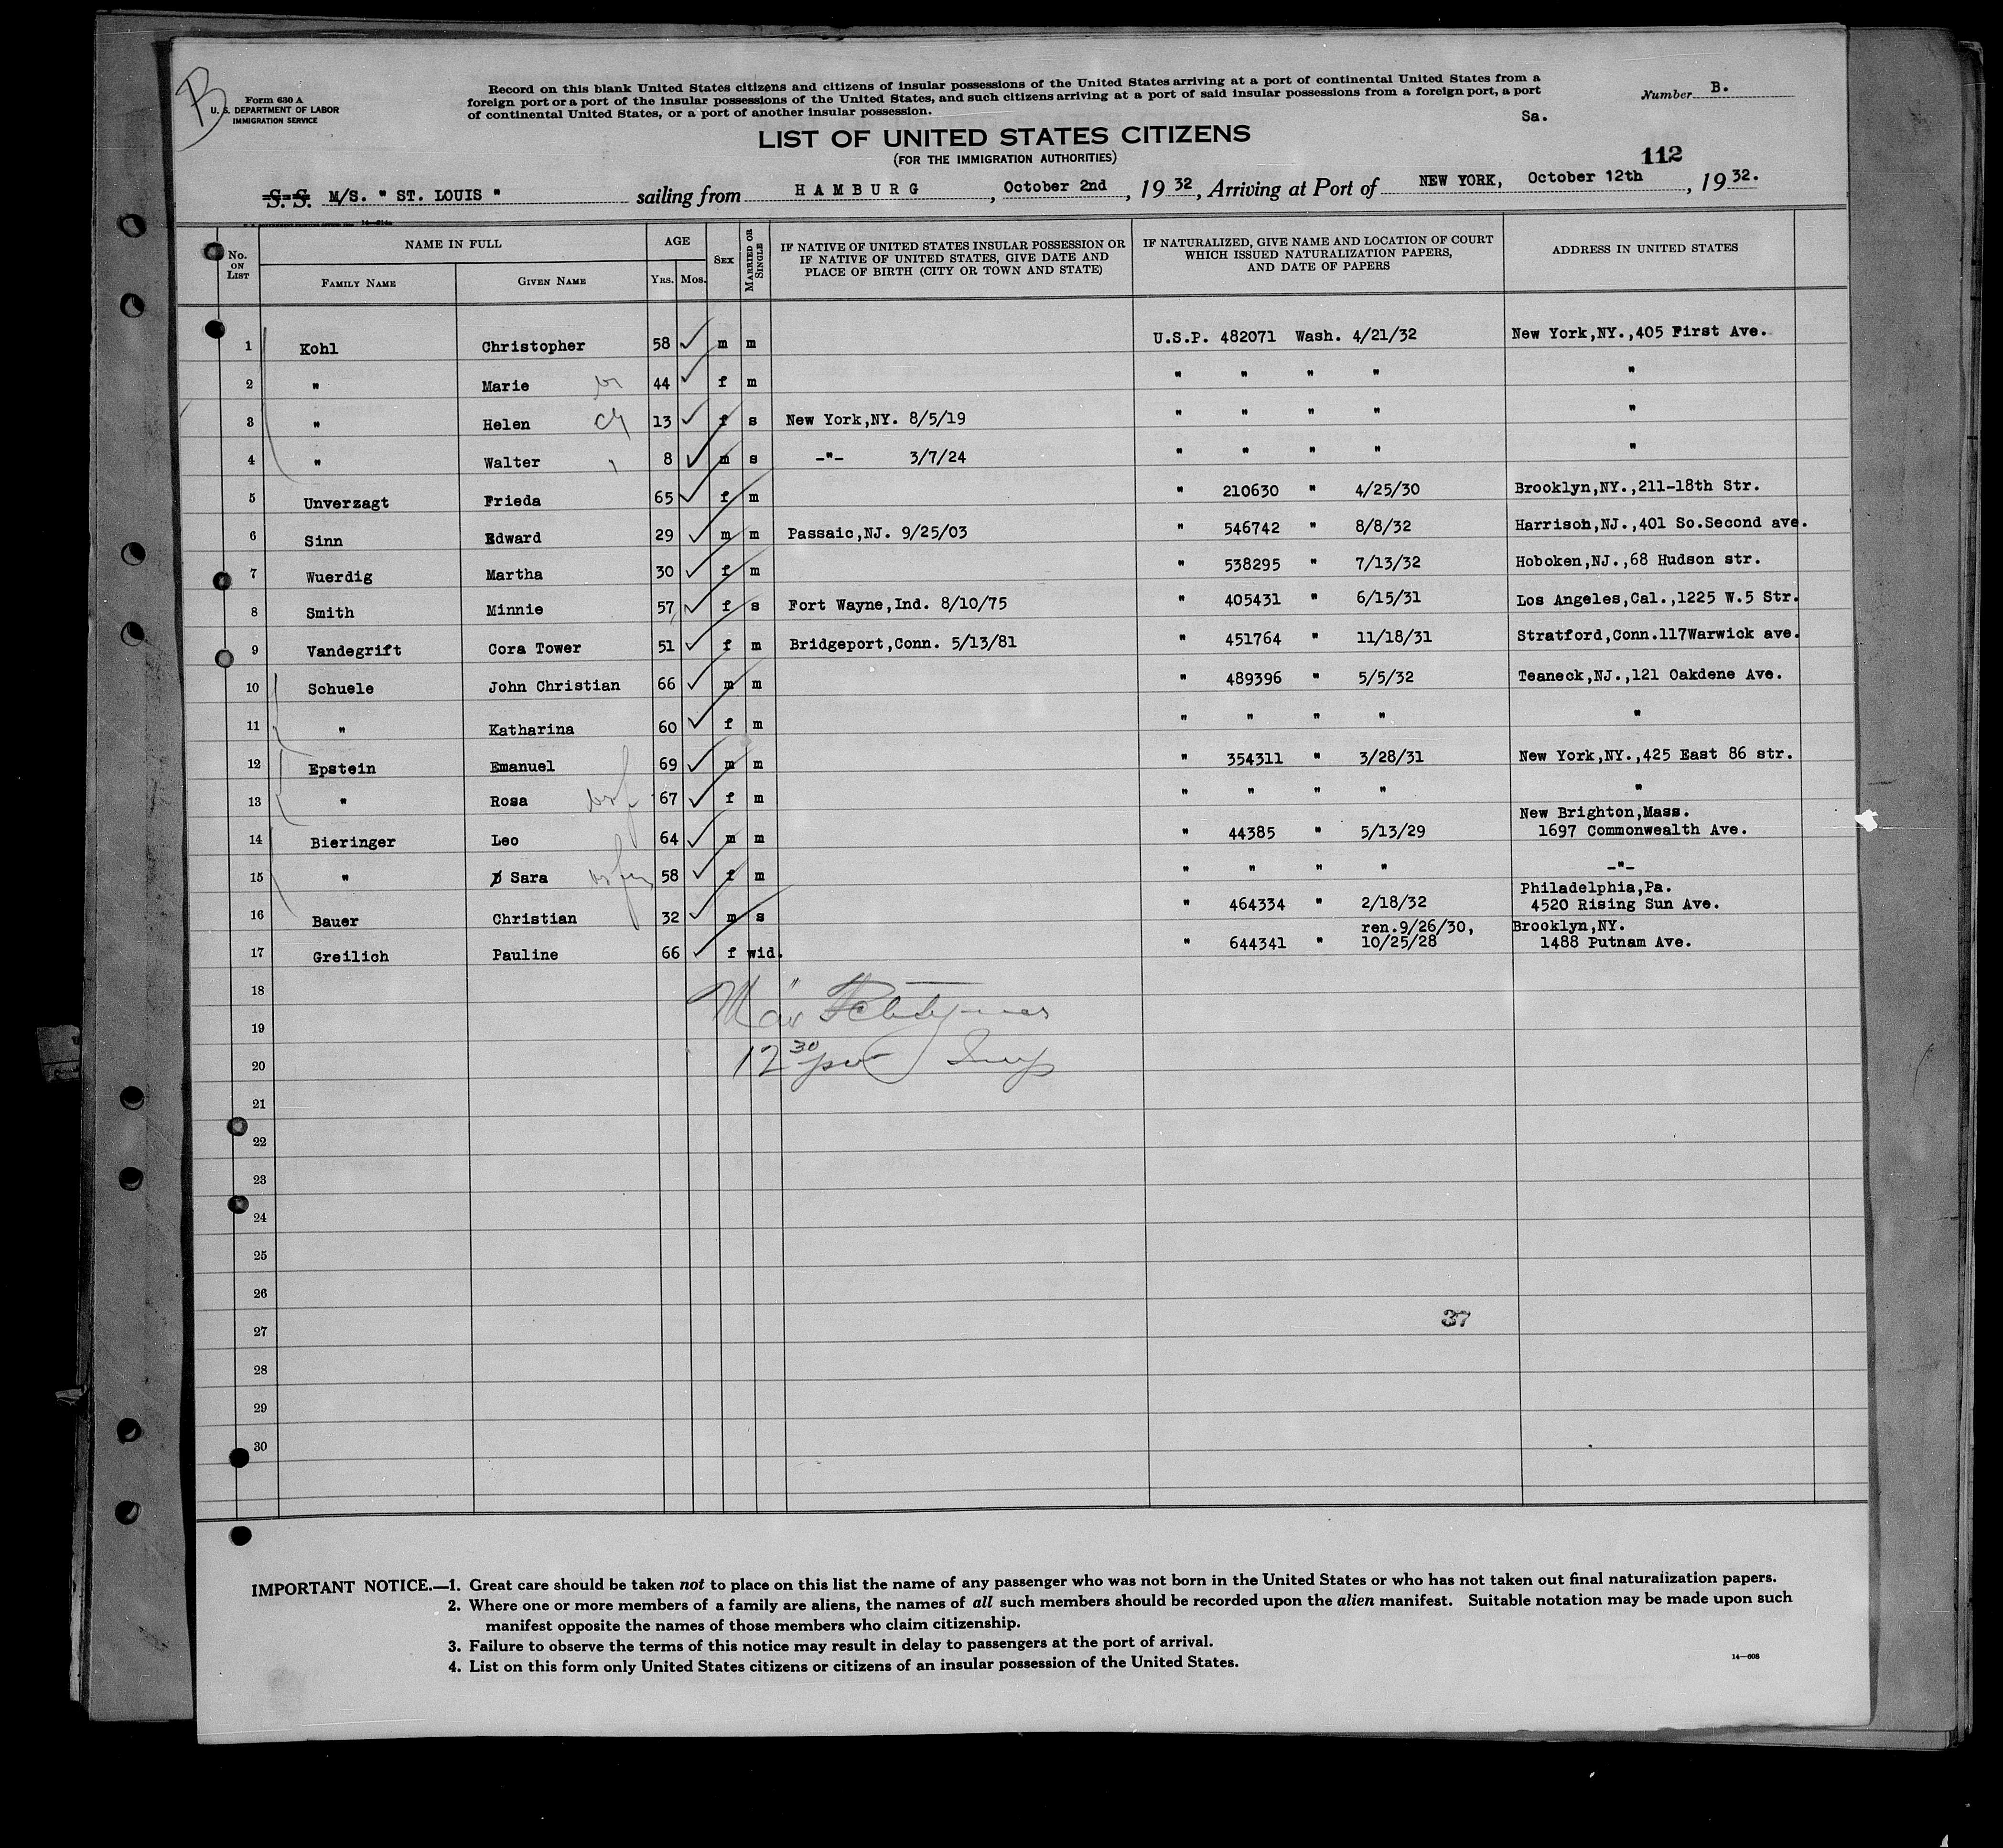 B
Form 630 A
U. S. DEPARTMENT OF LABOR
IMMIGRATION SERVICE
Record on this blank United States citizens and citizens of insular possessions of the United States arriving at a port of continental United States from a
foreign port or a port of the insular possessions of the United States, and such citizens arriving at a port of said insular possessions from a foreign port, a port
of continental United States, or a port of another insular possession.
Number B.
Sa.
LIST OF UNITED STATES CITIZENS
(FOR THE IMMIGRATION AUTHORITIES)
112
S. S. M/S. " ST. LOUIS " sailing from HAMBURG, October 2nd, 1932, Arriving at Port of NEW YORK, October 12th, 1932.
No. ON LIST NAME IN FULL AGE SEX MARRIED OR SINGLE IF NATIVE OF UNITED STATES INSULAR POSSESSION OR IF NATIVE OF UNITED STATES, GIVE DATE AND PLACE OF BIRTH (CITY OR TOWN AND STATE) IF NATURALIZED, GIVE NAME AND LOCATION OF COURT WHICH ISSUED NATURALIZATION PAPERS, AND DATE OF PAPERS ADDRESS IN UNITED STATES
FAMILY NAME GIVEN NAME YRS. MOS.
1 Kohl Christopher 58 ✓ m m U.S.P. 482071 Wash. 4/21/32 New York,NY.,405 First Ave.
2 " Marie 44 ✓ f m " " " " "
3 " Helen 13 ✓ f s New York,NY. 8/5/19 " " " " "
4 " Walter 8 ✓ m s -"- 3/7/24 " " " " "
5 Unverzagt Frieda 65 ✓ f m " 210630 " 4/25/30 Brooklyn,NY.,211-18th Str.
6 Sinn Edward 29 ✓ m m Passaic,NJ. 9/25/03 " 546742 " 8/8/32 Harrison,NJ.,401 So.Second ave.
7 Wuerdig Martha 30 ✓ f m " 538295 " 7/13/32 Hoboken,NJ.,68 Hudson str.
8 Smith Minnie 57 ✓ f s Fort Wayne,Ind. 8/10/75 " 405431 " 6/15/31 Los Angeles,Cal.,1225 W.5 Str.
9 Vandegrift Cora Tower 51 ✓ f m Bridgeport,Conn. 5/13/81 " 451764 " 11/18/31 Stratford,Conn.117Warwick ave.
10 Schuele John Christian 66 ✓ m m " 489396 " 5/5/32 Teaneck,NJ.,121 Oakdene Ave.
11 " Katharina 60 ✓ f m " " " " "
12 Epstein Emanuel 69 ✓ m m " 354311 " 3/28/31 New York,NY.,425 East 86 str.
13 " Rosa 67 ✓ f m " " " " "
New Brighton,Mass.
14 Bieringer Leo 64 ✓ m m " 44385 " 5/13/29 1697 Commonwealth Ave.
15 " Sara 58 ✓ f m " " " " -"-
Philadelphia,Pa.
16 Bauer Christian 32 ✓ m s " 464334 " 2/18/32 4520 Rising Sun Ave.
ren.9/26/30, Brooklyn,NY.
17 Greilich Pauline 66 ✓ f wid. " 644341 " 10/25/28 1488 Putnam Ave.
18
19
20 12 30
21
22
23
24
25
26
37
27
28
29
30
IMPORTANT NOTICE.—1. Great care should be taken not to place on this list the name of any passenger who was not born in the United States or who has not taken out final naturalization papers.
2. Where one or more members of a family are aliens, the names of all such members should be recorded upon the alien manifest. Suitable notation may be made upon such
manifest opposite the names of those members who claim citizenship.
3. Failure to observe the terms of this notice may result in delay to passengers at the port of arrival.
4. List on this form only United States citizens or citizens of an insular possession of the United States.
14—608